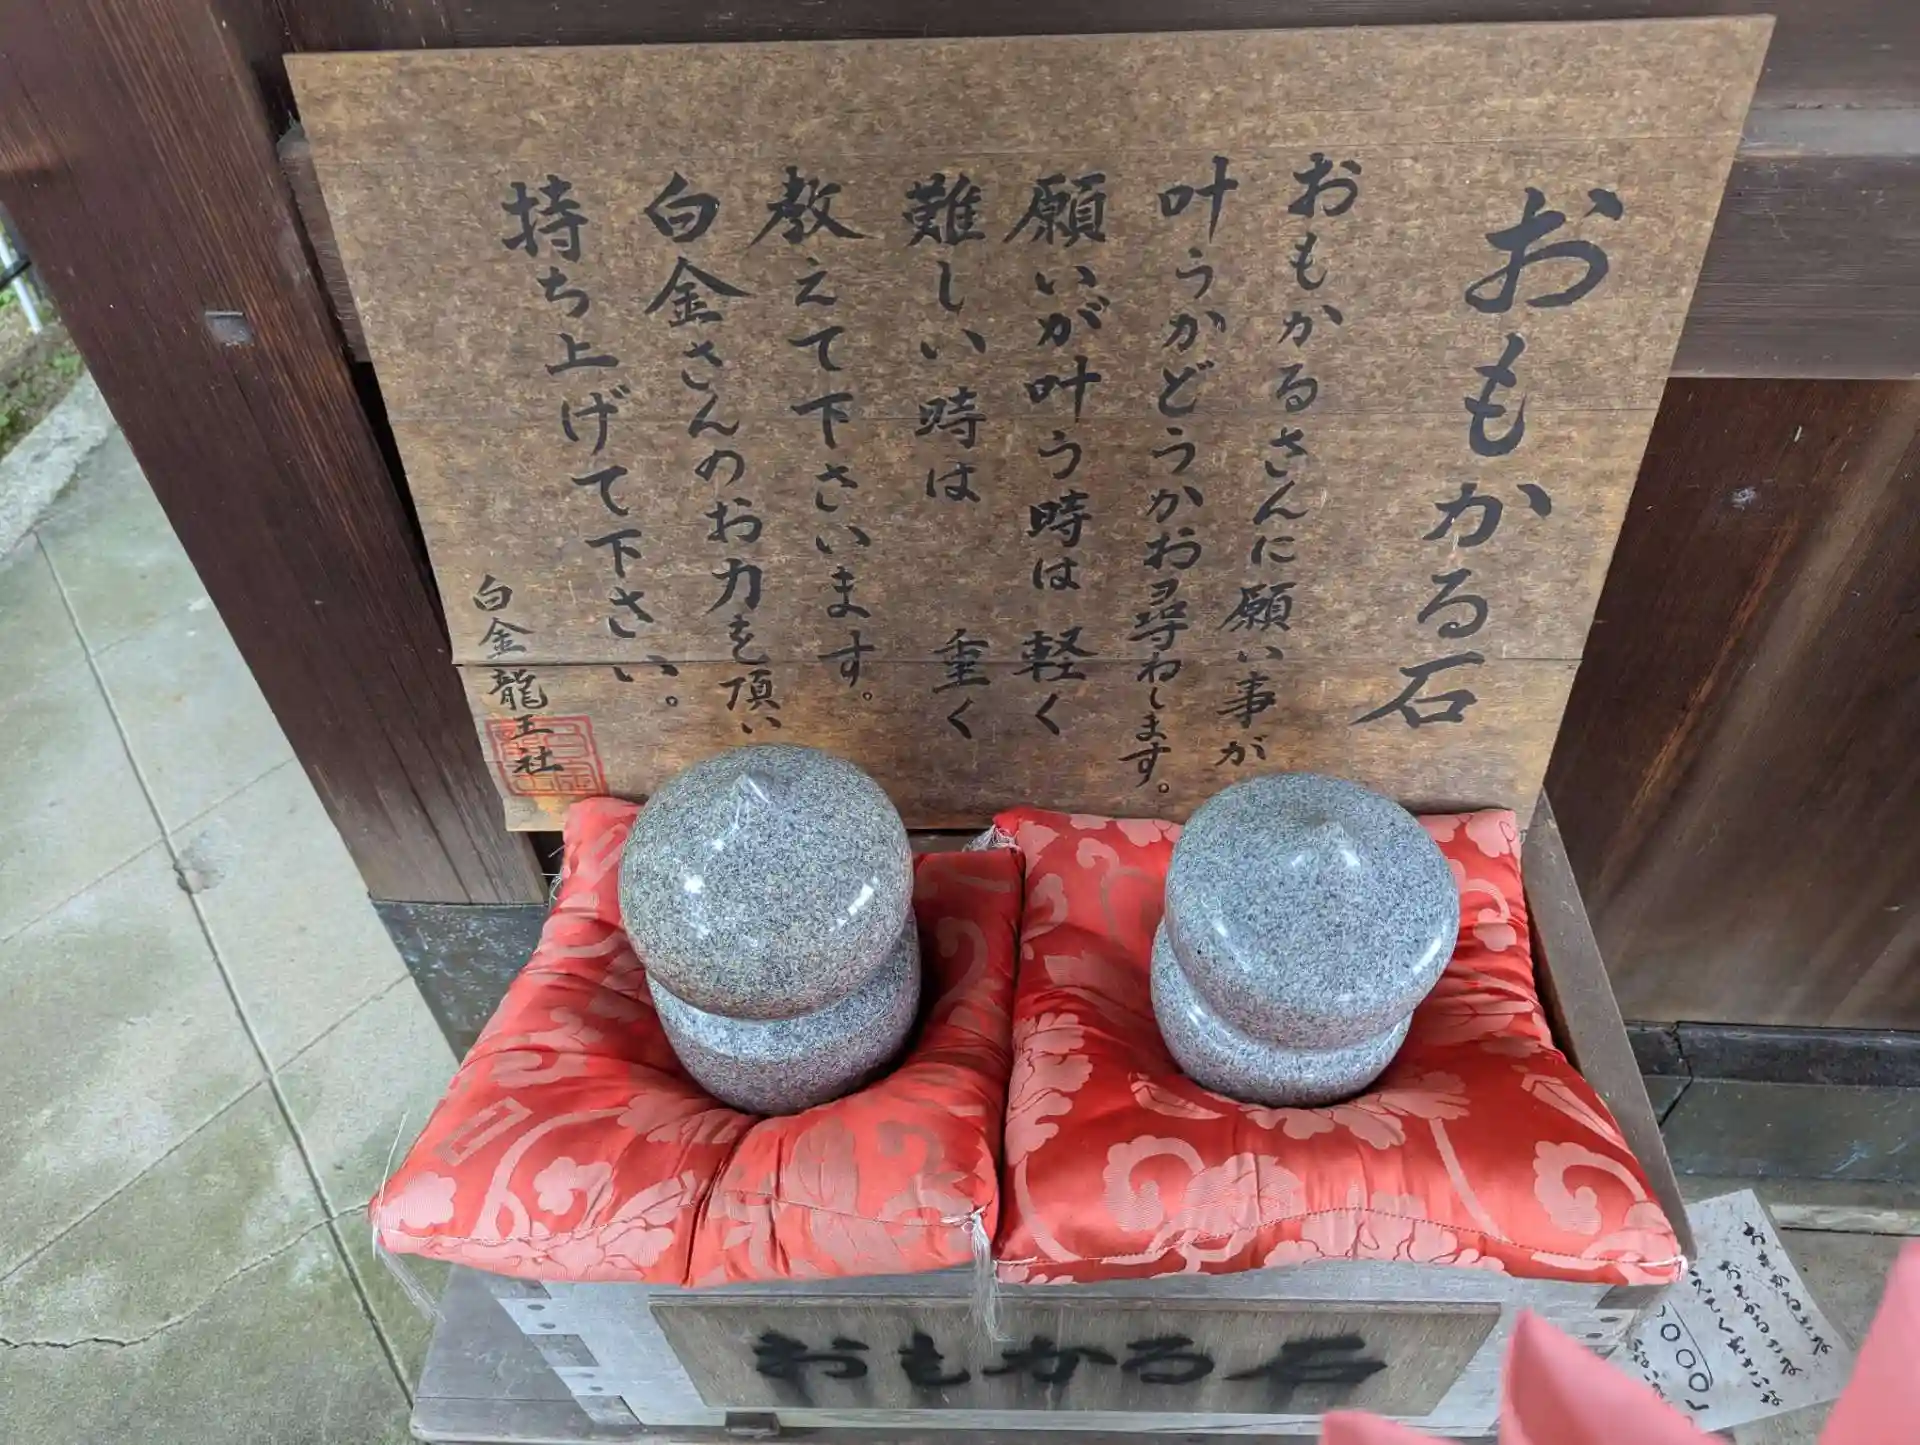 おもかる石
おもかるさんに願い事が
叶うかどうかお尋ねします。
願いが叶う時は 軽く
難しい時は 重く
教えて下さいます。
白金さんのお力を頂い
持ち上げて下さい。
白金龍王社
おもかる石